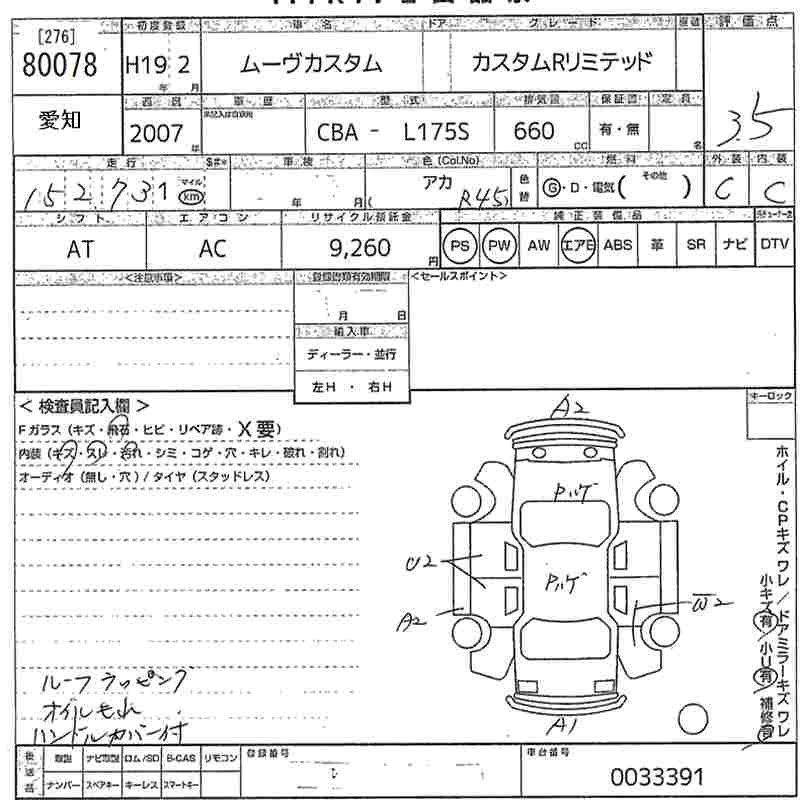 [276]
80078
初度登録
車名
ドア
グレード
評価点
H19 2
年 月
ムーヴカスタム
カスタムRリミテッド
3.5
愛知
車歴
型式
排気量
保証書
定員
2007
年
CBA - L175S
660
CC
有・無
名
走行
車検
色(Col.No)
燃料
外装
内装
152731
マイル
km
年 月
アカ
( R45 )
色替
G・D・電気( その他 )
C
C
シフト
エアコン
リサイクル預託金
純正装備品
AT
AC
9,260
円
PS PW AW エアB ABS 革 SR ナビ DTV
<注意事項>
登録書類有効期限
<セールスポイント>
月 日
輸入車
ディーラー・並行
左H ・ 右H
< 検査員記入欄 >
キーロック
Fガラス(キズ・飛石・ヒビ・リペア跡・X要)
内装(キズ・スレ・汚れ・シミ・コゲ・穴・キレ・破れ・割れ)
オーディオ(無し・穴)/タイヤ(スタッドレス)
A2
Pハゲ
U2
Pハゲ
A2
W2
A1
ホイル・CPキズ ワレ/ドアミラーキズ ワレ
小キズ有/小U有/補修有
ルーフラッピング
オイルもれ
ハンドルカバー付
後送品
取説 ナビ取説 ロム/SD B-CAS リモコン
ナンバー スペアキー キーレス スマートキー
登録番号
車台番号
0033391